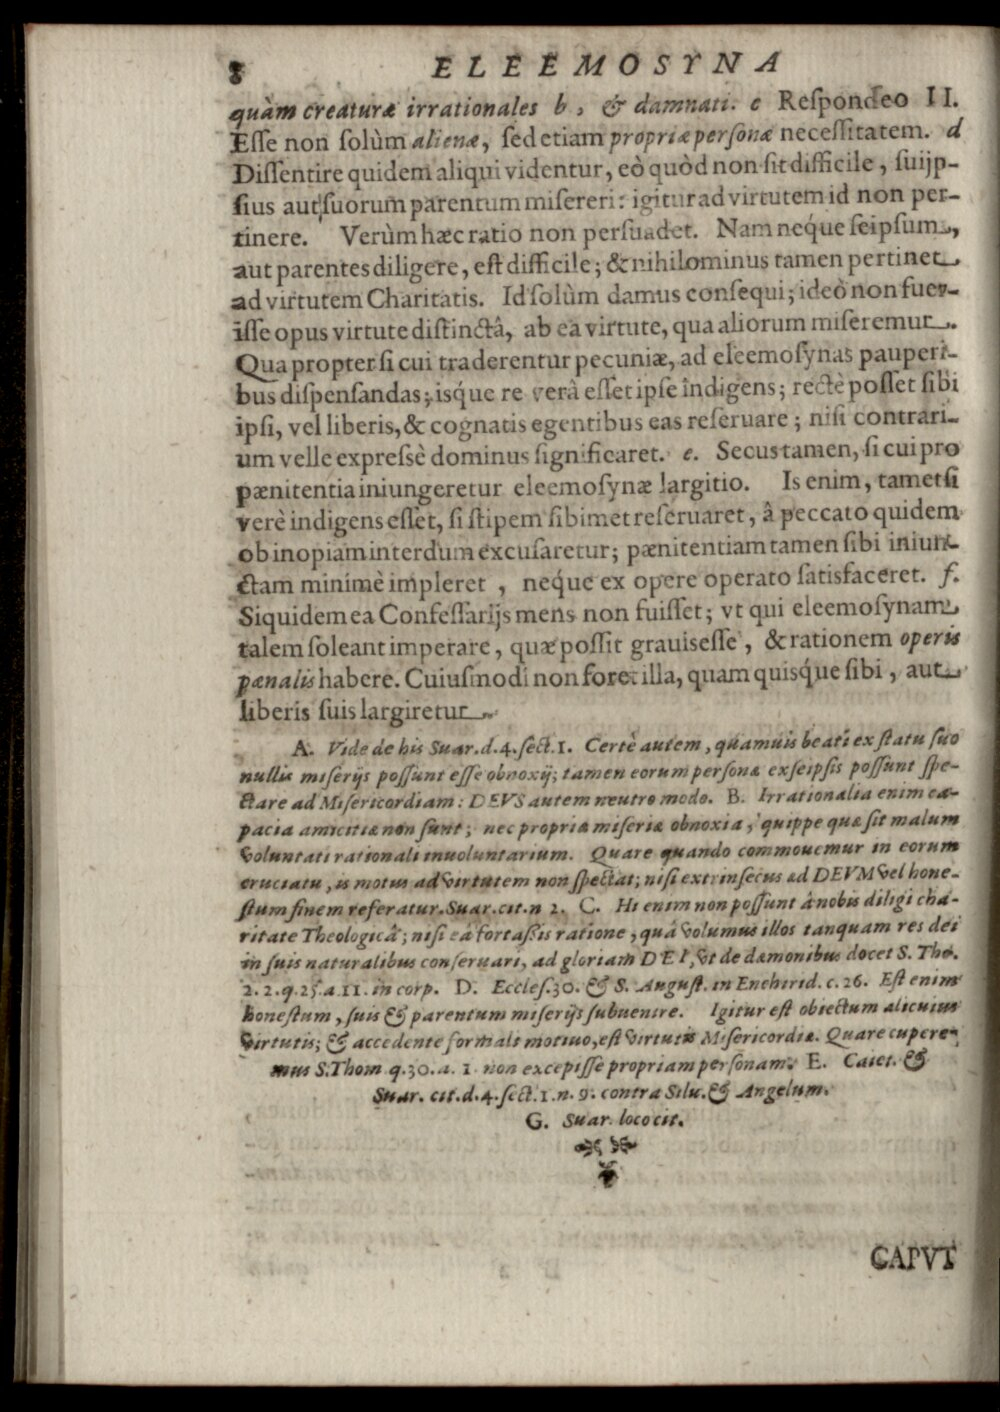 8 ELEEMOSYNA
quàm creaturæ irrationales b, & damnati. c Respondeo II.
Esse non solùm alienæ, sed etiam propriæ personæ necessitatem. d
Dissentire quidem aliqui videntur, eò quòd non sit difficile, suijp-
sius aut suorum parentum misereri: igitur ad virtutem id non per-
tinere. Verùm hæc ratio non persuadet. Nam neque seipsum,
aut parentes diligere, est difficile; & nihilominus tamen pertinet
ad virtutem Charitatis. Id solùm damus consequi; ideò non fuev-
isse opus virtute distinctâ, ab ea virtute, qua aliorum miseremur.
Qua propter si cui traderentur pecuniæ, ad eleemosynas pauperi-
bus dispensandas; isque re verâ esset ipse indigens; rectè posset sibi
ipsi, vel liberis, & cognatis egentibus eas reseruare; nisi contrari-
um velle expressè dominus significaret. e. Secus tamen, si cui pro
pænitentia iniungeretur eleemosynæ largitio. Is enim, tametsi
verè indigens esset, si stipem sibimet reseruaret, â peccato quidem
ob inopiam interdum excusaretur; pænitentiam tamen sibi iniun-
ctam minimè impleret, neque ex opere operato satisfaceret. f.
Siquidem ea Confessarijs mens non fuisset; vt qui eleemosynam
talem soleant imperare, quæ possit grauis esse, & rationem operis
pænalis habere. Cuiusmodi non foret illa, quam quisque sibi, aut
liberis suis largiretur.
A. Vide de his Suar. d. 4. sect. 1. Certè autem, quamuis beati ex statu suo
nullis miserijs possunt esse obnoxij; tamen eorum personæ ex seipsis possunt spe-
ctare ad Misericordiam: DEVS autem neutro modo. B. Irrationalia enim ca-
pacia amicitiæ non sunt; nec propriæ miseriæ obnoxia, quippe quæ sit malum
voluntati rationali inuoluntarium. Quare quando commouemur in eorum
cruciatu, is motus ad virtutem non spectat; nisi extrinsecus ad DEVM vel hone-
stum finem referatur. Suar. cit. n 2. C. Hi enim non possunt ânobis diligi cha-
ritate Theologicâ; nisi eâ fortaßis ratione, quâ volumus illos tanquam res dei
in suis naturalibus conseruari, ad gloriam DEI, vt de dæmonibus docet S. Tho.
2. 2. q. 25. a. 11. in corp. D. Eccles. 30. & S. August. in Enchirid. c. 26. Est enim
honestum, suis & parentum miserijs subuenire. Igitur est obiectum alicuius
virtutis; & accedente formali motiuo, est virtutis Misericordiæ. Quare cupere-
mus S. Thom q. 30. a. 1. non excepisse propriam personam. E. Caiet. &
Suar. cit. d. 4. sect. 1. n. 9. contra Silu. & Angelum.
G. Suar. loco cit.
CAPVT